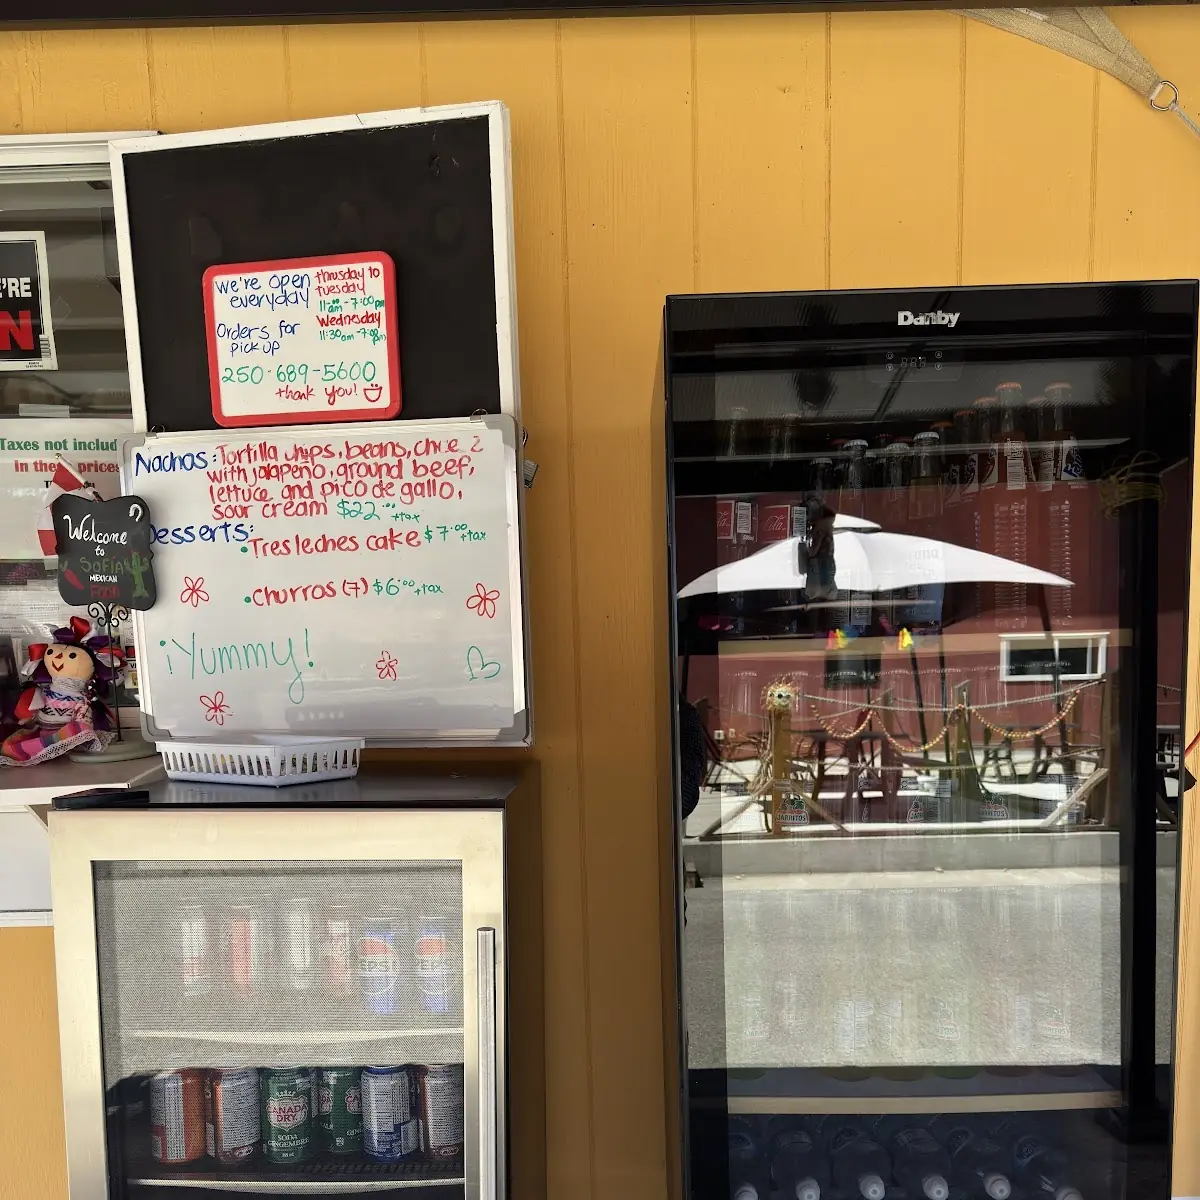 We're open
everyday
thrusday to
tuesday
11:00am-7:00pm
Wednesday
11:30am-7:00pm
Orders for
pick up
250-689-5600
thank you!
Nachos: Tortilla chips, beans,
with jalapeño, ground beef,
lettuce and pico de gallo,
sour cream $22.00+tax
Desserts:
•Tres leches cake $7.00+tax
•churros (7) $6.00+tax
¡Yummy!
'RE
N
Taxes not includ
in these prices
Welcome
to
Sofía
MEXICAN
FOOD
Danby
JARRITOS
JARRITOS
EPSI
CANADA
DRY
SODA
GINGEMBRE